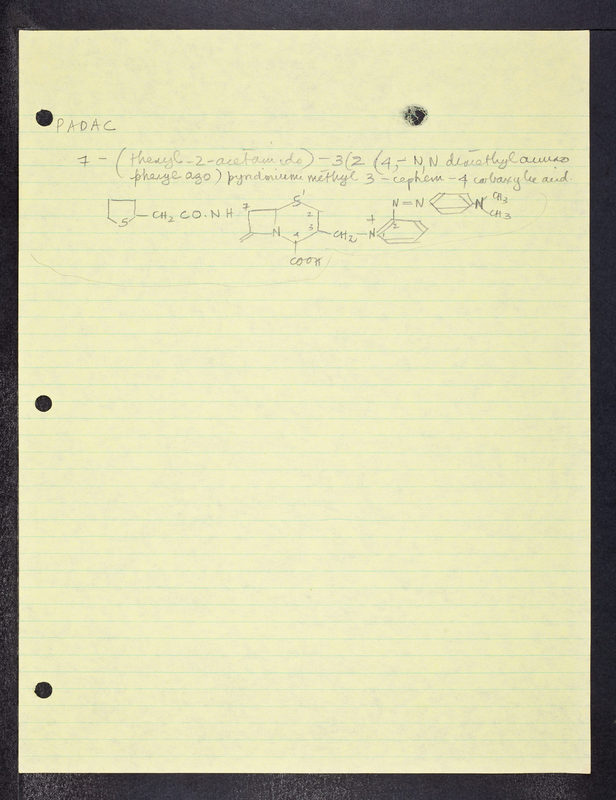 PADAC
7 - (thenyl-2-acetamido) - 3(2 (4,- N,N dimethylamino
phenyl azo) pyridinium methyl 3 - cephem - 4 carboxylic acid.
S CH2 CO.NH 7 S' 2 3 4 N CH2 - N + 1 2 N=N N CH3 CH3
COOH